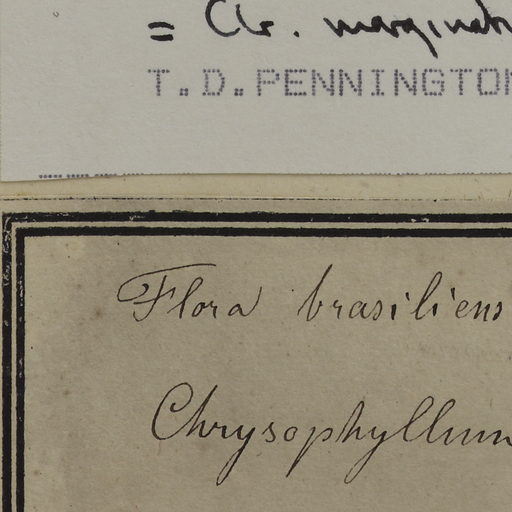 = Chr. marginat
T.D.PENNINGTON
Flora brasiliens
Chrysophyllum